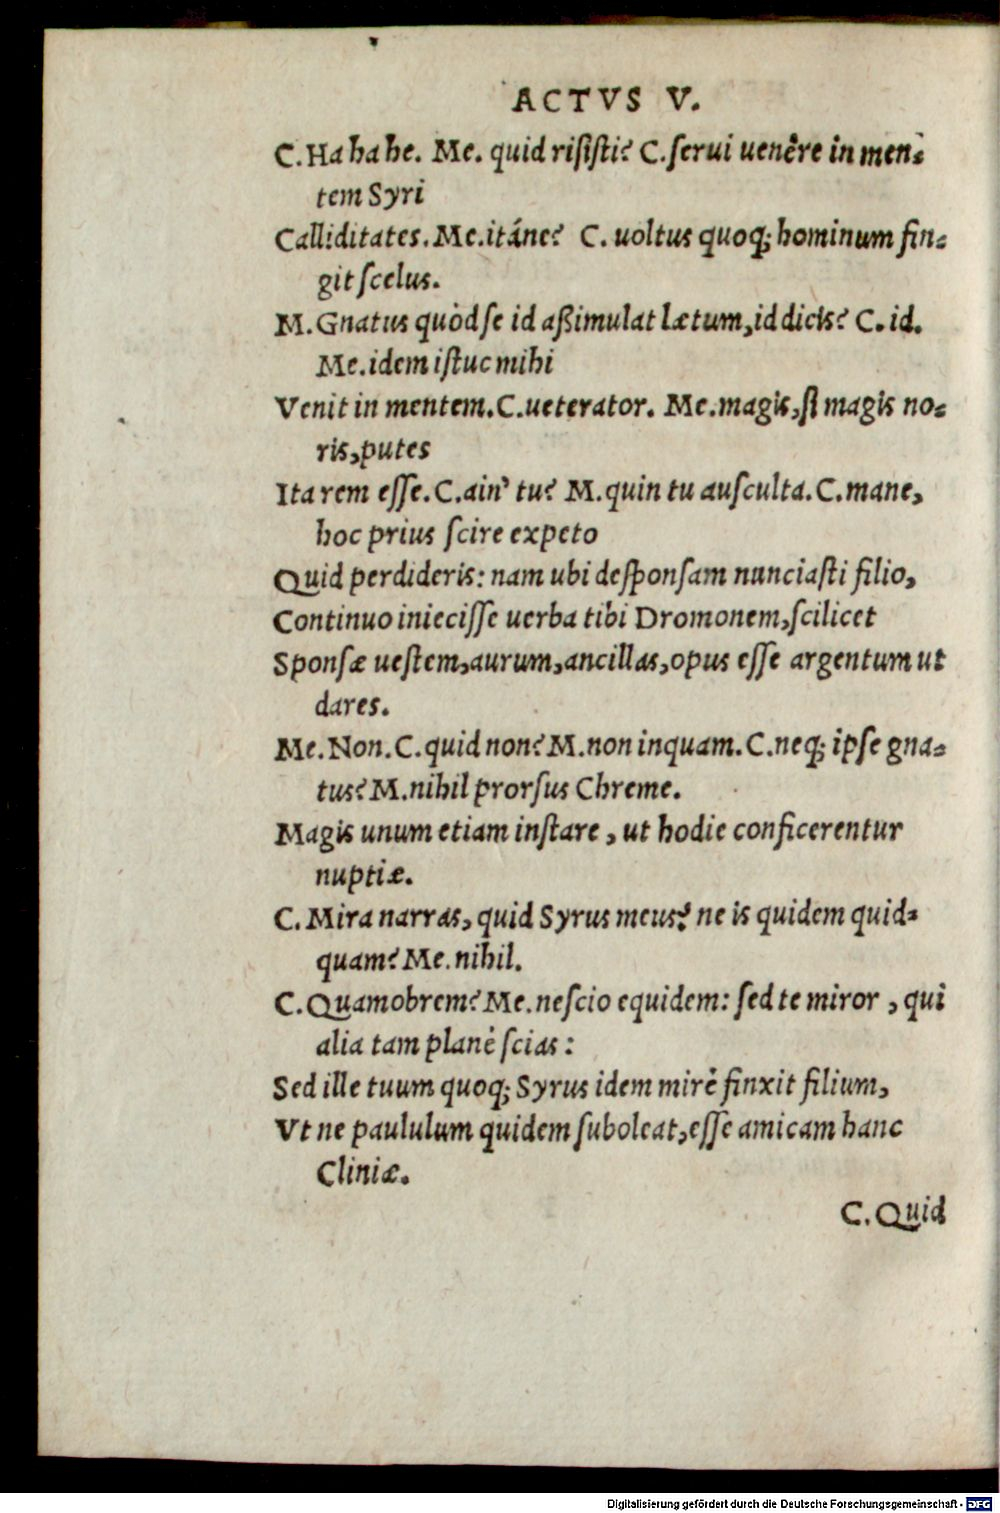 ACTVS V.
C. Ha ha he. Me. quid risisti? C. serui uenêre in men-
tem Syri
Calliditates. Me. itáne? C. uoltus quoq; hominum fin-
git scelus.
M. Gnatus quòd se id aßimulat lætum, id dicis? C. id.
Me. idem istuc mihi
Venit in mentem. C. ueterator. Me. magis, si magis no-
ris, putes
Ita rem esse. C. ain' tu? M. quin tu ausculta. C. mane,
hoc prius scire expeto
Quid perdideris: nam ubi desponsam nunciasti filio,
Continuo iniecisse uerba tibi Dromonem, scilicet
Sponsæ uestem, aurum, ancillas, opus esse argentum ut
dares.
Me. Non. C. quid non? M. non inquam. C. neq; ipse gna-
tus? M. nihil prorsus Chreme.
Magis unum etiam instare, ut hodie conficerentur
nuptiæ.
C. Mira narras, quid Syrus meus? ne is quidem quid-
quam? Me. nihil.
C. Quamobrem? Me. nescio equidem: sed te miror, qui
alia tam planè scias:
Sed ille tuum quoq; Syrus idem mirè finxit filium,
Vt ne paululum quidem suboleat, esse amicam hanc
Cliniæ.
C. Quid
Digitalisierung gefördert durch die Deutsche Forschungsgemeinschaft - DFG